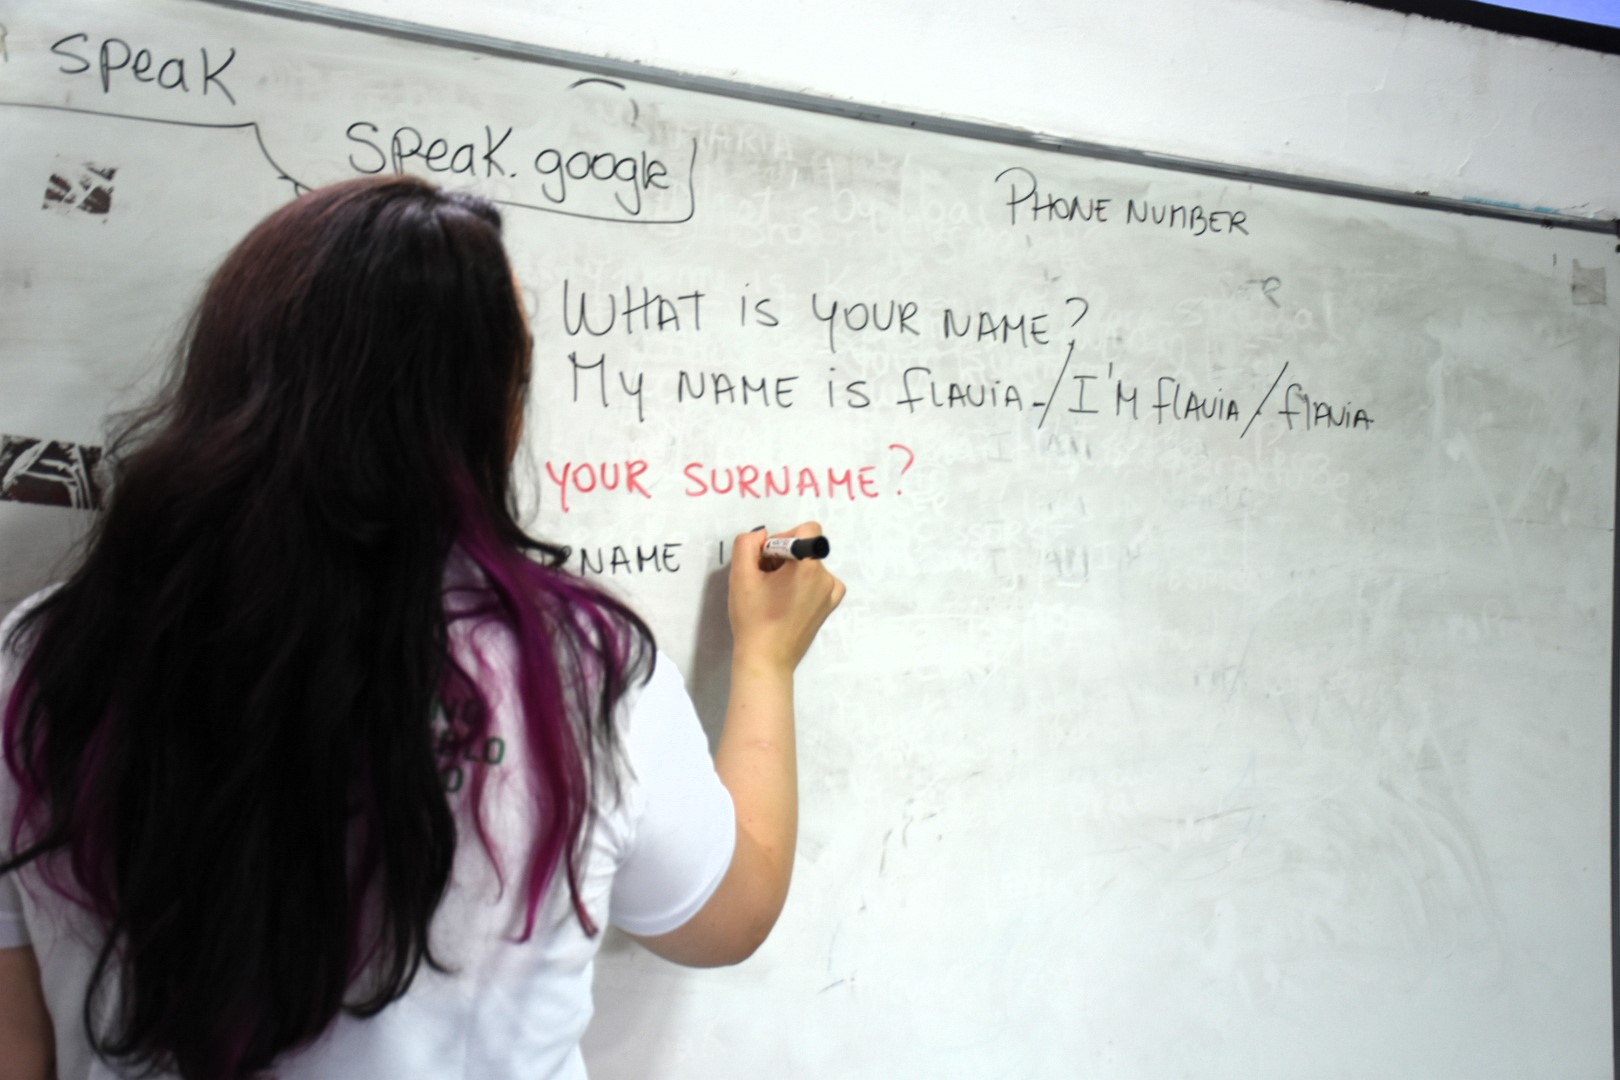 SPeaK
SPeaK. google
PHONE NUMBER
WHAT is YOUR NAME?
My NAME is flAViA-/I'M flAViA/flAViA
YOUR SURNAME?
RNAME I